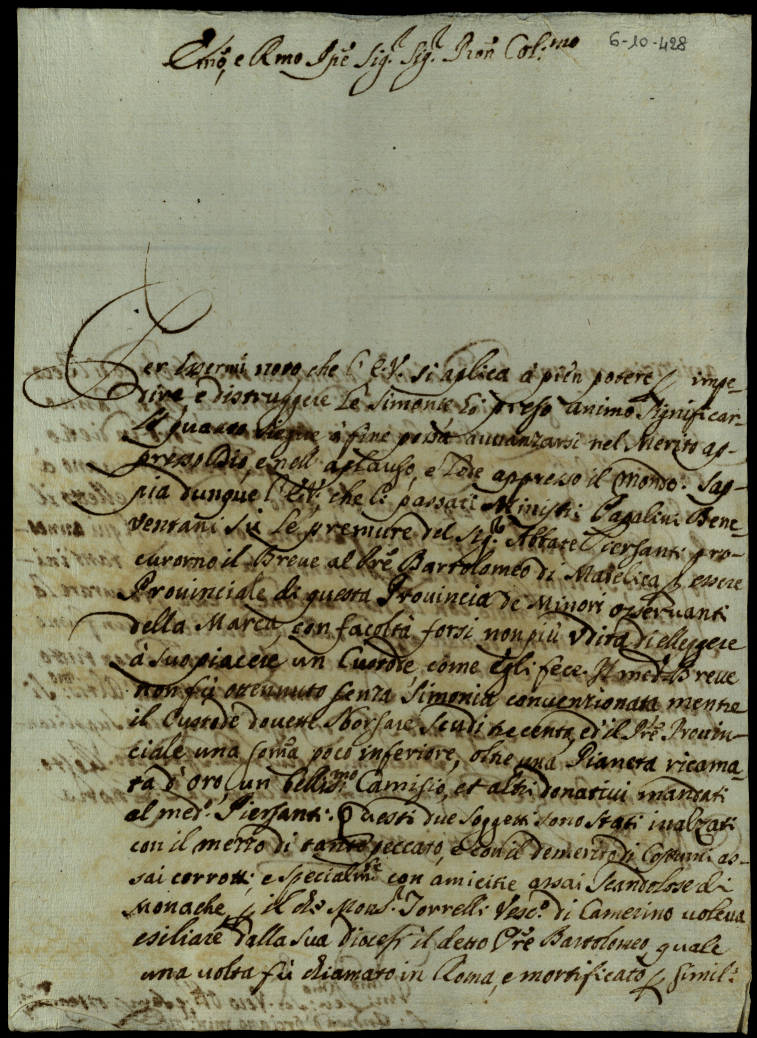 6-10-428
Em.o, e Rmo Pre Sig.r Sig.r Pron Col.mo
Per essermi noto che l'E.V. si aplica à pien potere p impe-
dire e distruggere le simonie hò preso animo significar-
le quanto siegue à fine possa avvanzarsi nel Merito ap-
presso Idio, e nell'aplauso, e lode appresso il Mondo. Sap-
pia dunque l'E.V. che li passati Ministri Pagalini Bene-
ventani sù le premure del Sig.r Abbate Piersanti pro-
curorno il Breve al Pre Bartolomeo di Matelica p essere
Provinciale di questa Provincia de Minori osservanti
della Marca, con facoltà forsi non più udita di elleggere
à suo piacere un Custode, come egli fece. Il med.o Breve
non fù ottenuto senza simonia convenzionata mentre
il Custode dovette sborsare scudi trecento, ed il Pre Provin-
ciale una soma poco inferiore, oltre una Pianeta ricama-
ta d'oro, un belliss.mo Camisio, et altri donativi mandati
al med.o Piersanti. Questi due soggetti sono stati inalzati
con il mezzo di tanto peccato, e con il demerito di Costumi as-
sai corrotti e specialm.te con amicitie assai scandolose di
Monache, p il che Mons.r Torrelli Vesc.o di Camerino voleva
esiliare dalla sua diocesi il detto Pre Bartolomeo quale
una volta fù chiamato in Roma, e mortificato p simil: